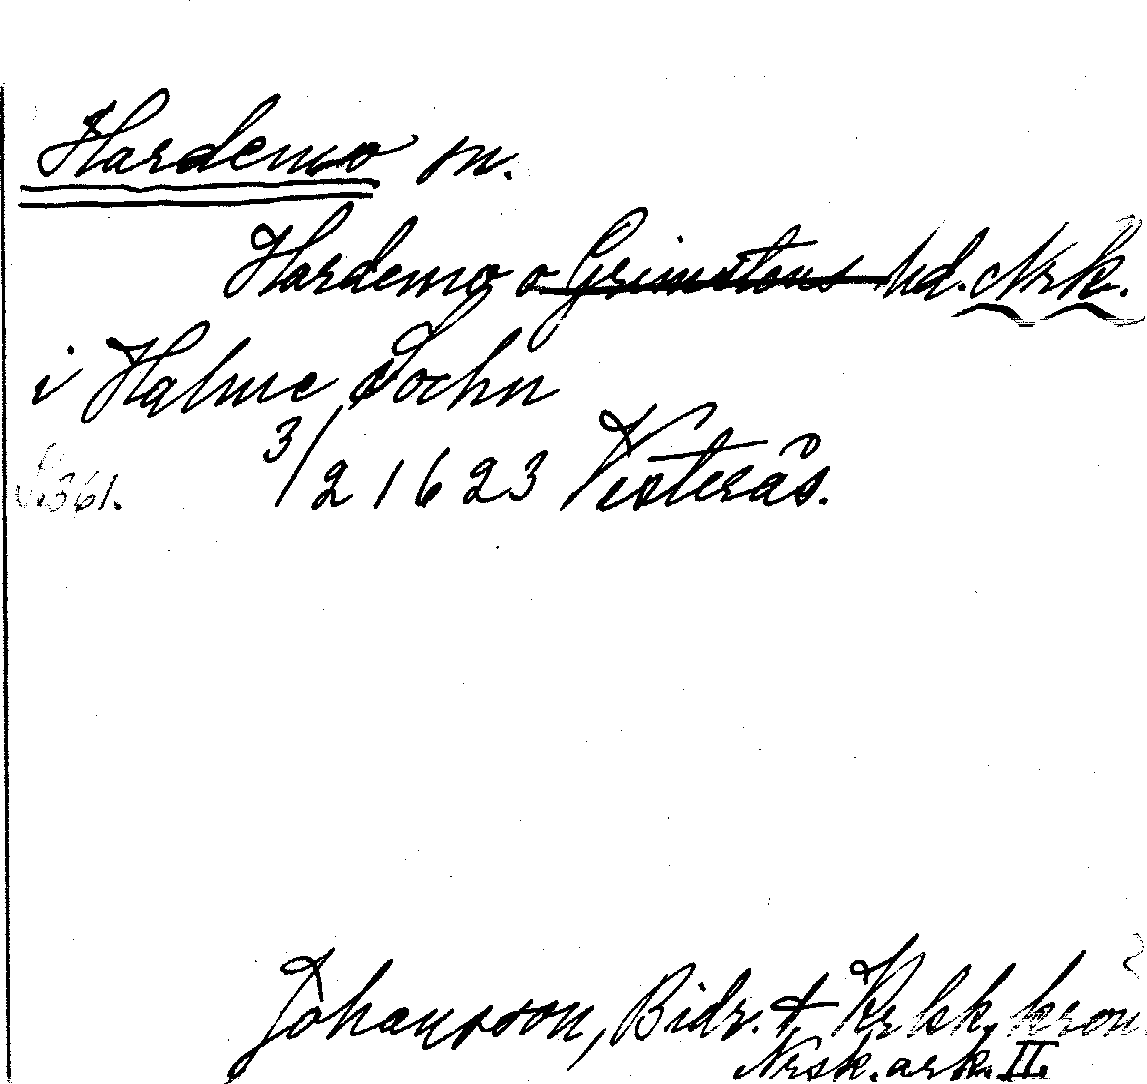 Hardemo sn.
Hardemo o Grimstens hd. Nrk.
i Halme Sochn
3/2 1623 Vesterås.
361.
Johansson, Bidr. t. Krlsk. krön
Nrsk. ark. II.